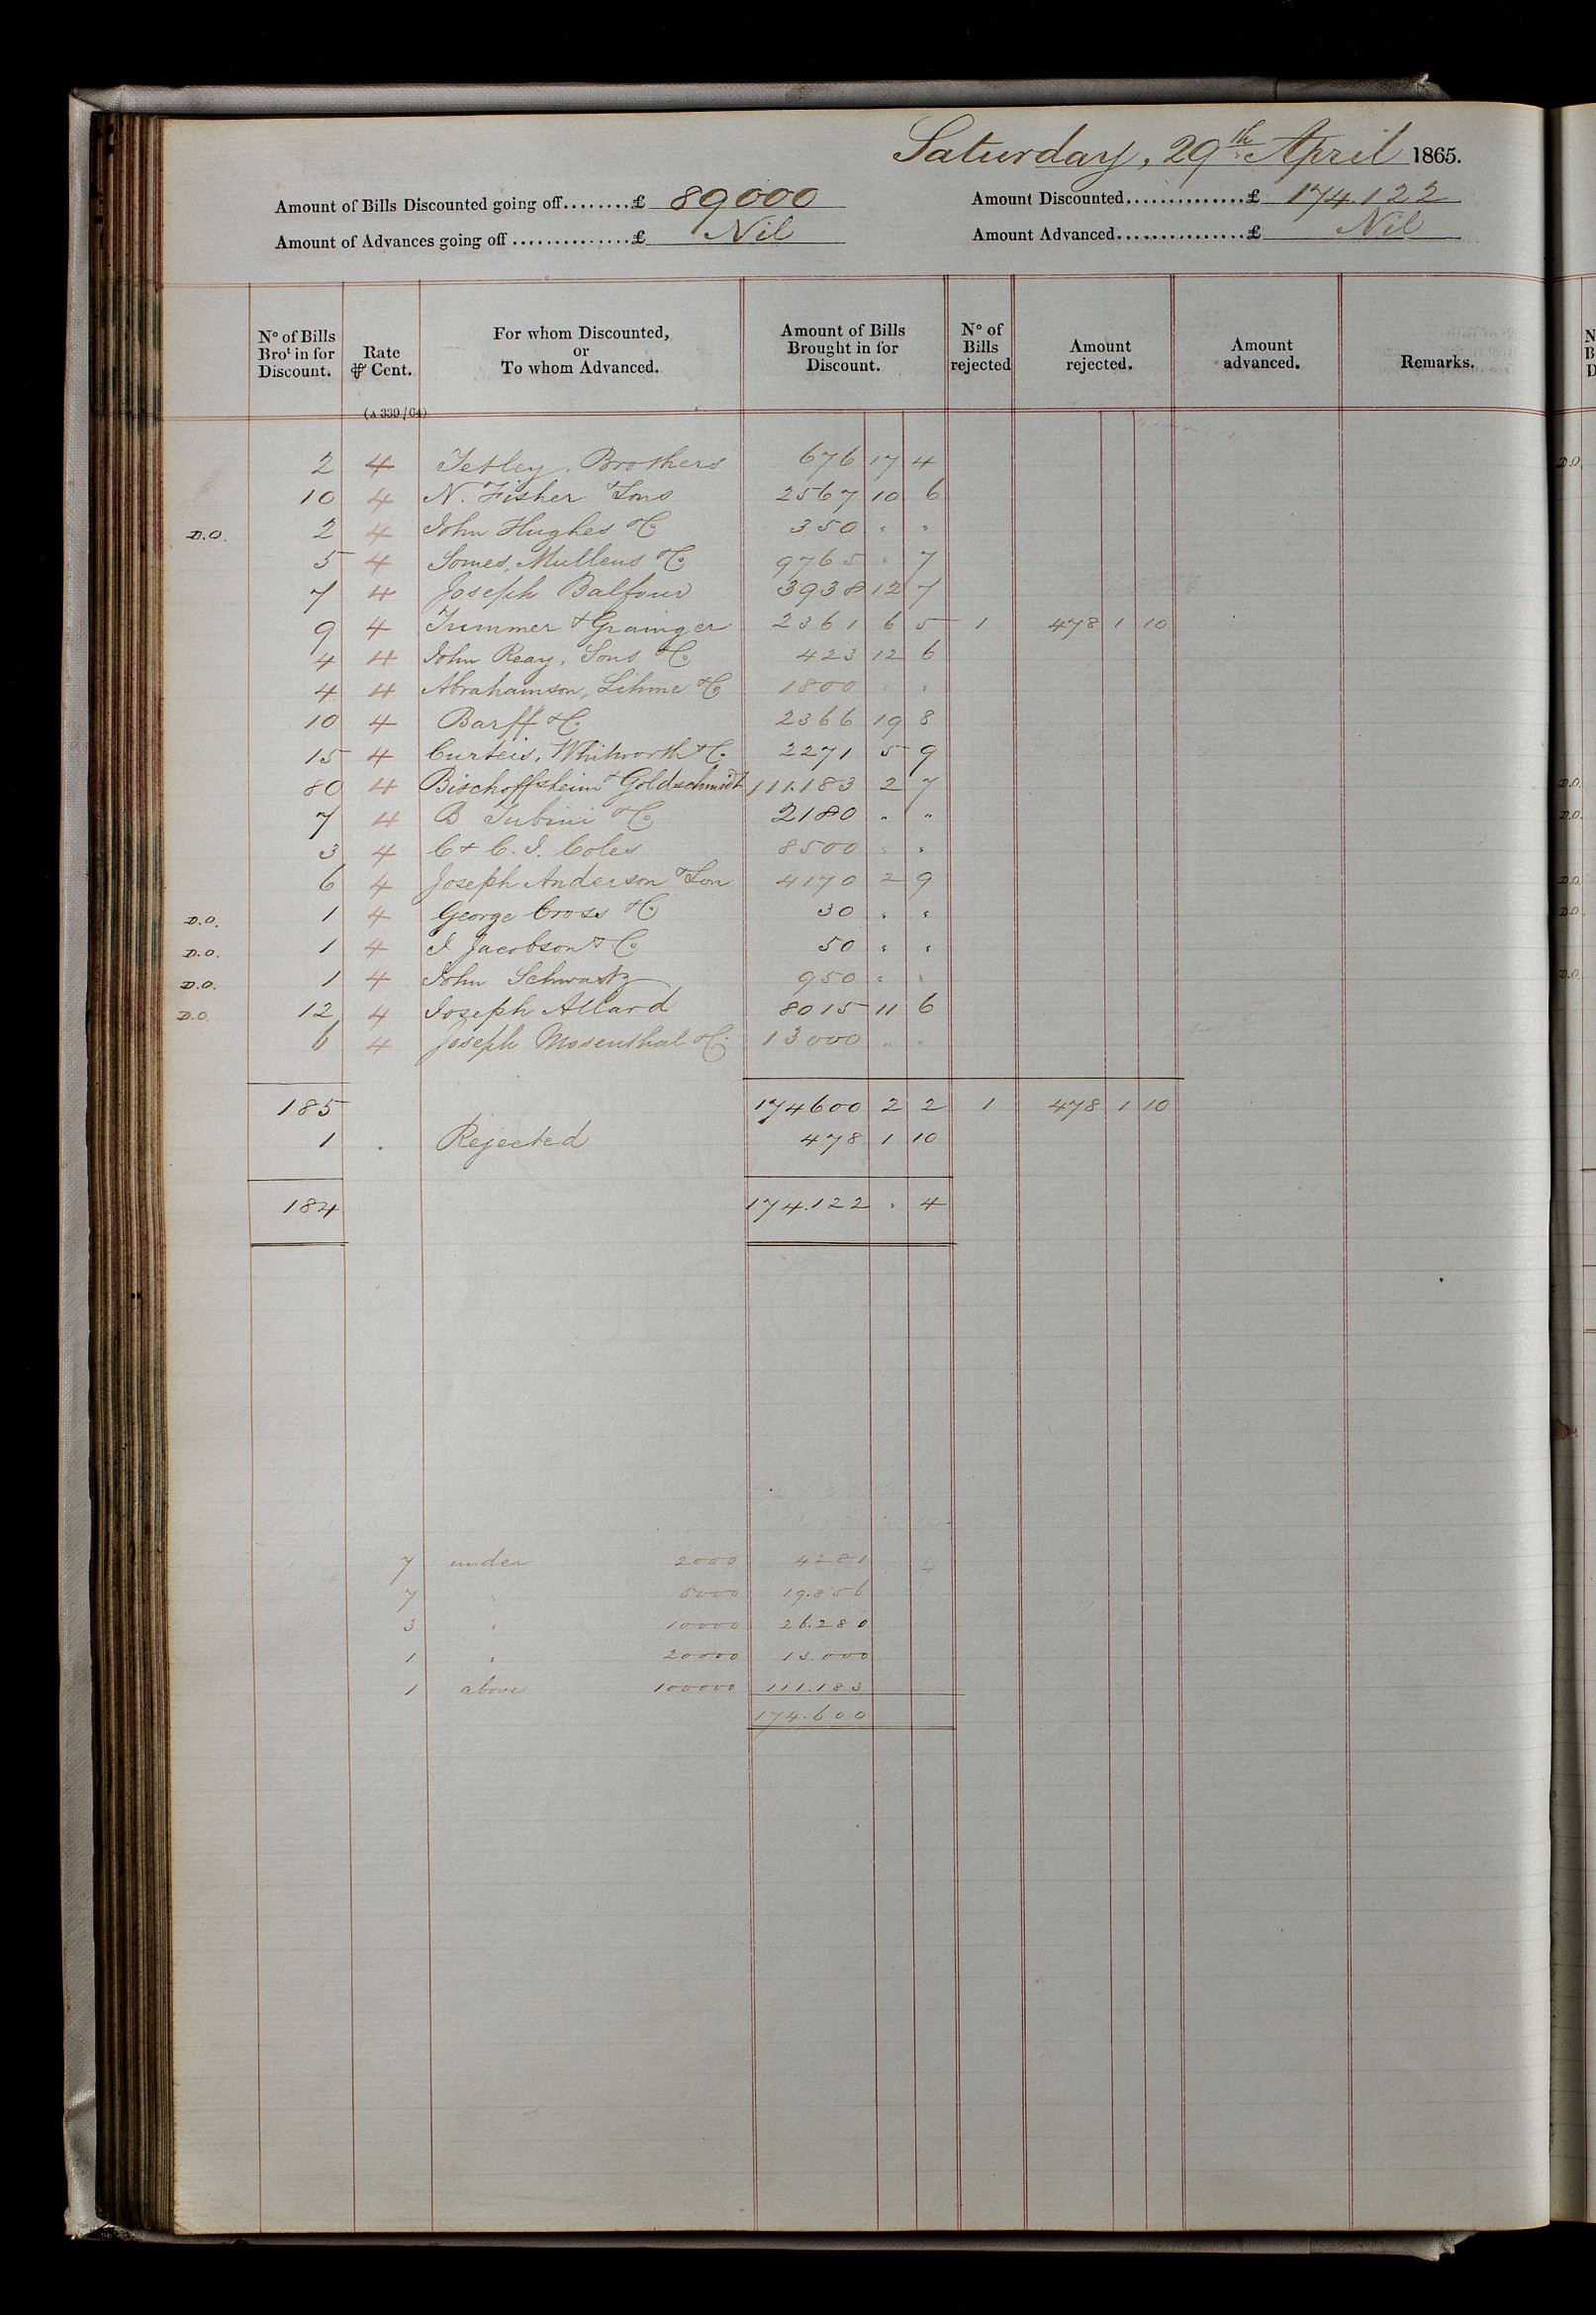 Saturday, 29th April 1865.
Amount of Bills Discounted going off........£ 89000 Amount Discounted..............£ 174.122
Amount of Advances going off...............£ Nil Amount Advanced................£ Nil
No of Bills Brot in for Discount. Rate ⅌ Cent. For whom Discounted, or To whom Advanced. Amount of Bills Brought in for Discount. No of Bills rejected Amount rejected. Amount advanced. Remarks.
(A 339/64)
2 4 Tetley, Brothers 676 17 4
10 4 N. Fisher & Sons 2567 10 6
D.O. 2 4 John Hughes & Co 350 " "
5 4 Somes, Mullens & Co 9765 " 7
7 4 Joseph Balfour 3938 12 7
9 4 Trimmer & Grainger 2361 6 5 1 478 1 10
4 4 John Reay, Sons & Co 423 12 6
4 4 Abrahamson, Lihme & Co 1800 " "
10 4 Barff & Co 2366 19 8
15 4 Curteis, Whitworth & Co 2271 5 9
80 4 Bischoffsheim & Goldschmidt 111.183 2 7
7 4 B Tubini & Co 2180 " "
3 4 C & C. I. Coles 8500 " "
6 4 Joseph Anderson & Son 4170 2 9
D.O. 1 4 George Cross & Co 30 " "
D.O. 1 4 I Jacobson & Co 50 " "
D.O. 1 4 John Schwartz 950 " "
D.O. 12 4 Joseph Allard 8015 11 6
6 4 Joseph Mosenthal & Co 13000 " "
185 174600 2 2 1 478 1 10
1 Rejected 478 1 10
184 174.122 " 4
7 under 2000 4281
7 " 5000 19.856
3 " 10000 26.280
1 " 20000 13.000
1 above 100000 111.183
174.600